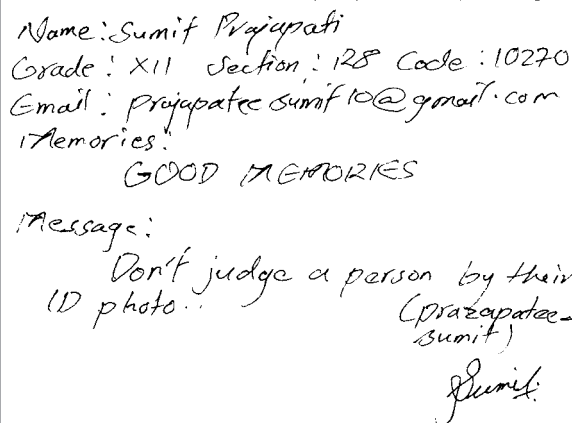 Name: Sumit Prajapati
Grade: XII Section: 128 Code: 10270
Email: prajapateesumit10@gmail.com
Memories:
GOOD MEMORIES
Message:
Don't judge a person by their
ID photo..
(prazapatee-
sumit)
Sumit.